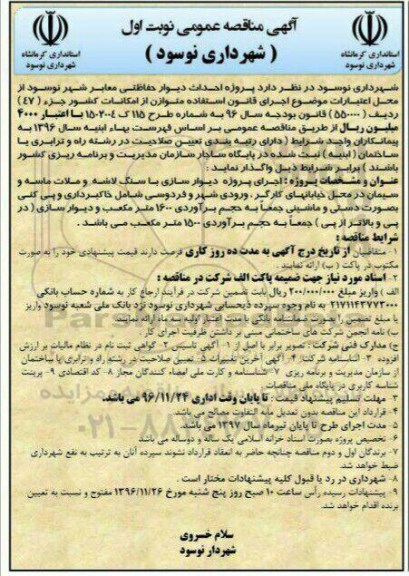 آگهی مناقصه عمومی نوبت اول
( شهرداری نوسود )
استانداری کرمانشاه
شهرداری نوسود
استانداری کرمانشاه
شهرداری نوسود
شهرداری نوسود در نظر دارد پروژه احداث دیوار حفاظتی معابر شهر نوسود از
محل اعتبارات موضوع اجرای قانون استفاده متوازن از امکانات کشور جزء ( ۴۷ )
ردیف ( ۵۵۰۰۰۰ ) قانون بودجه سال ۹۶ به شماره طرح ۱۵۰۲۰۰۴ ک ۱۱۵ با اعتبار ۴۰۰۰
میلیون ریال از طریق مناقصه عمومی بر اساس فهرست بهاء ابنیه سال ۱۳۹۶ به
پیمانکاران واجد شرایط ( دارای رتبه بندی تعیین صلاحیت در رشته راه و ترابری یا
ساختمان ( ابنیه ) ثبت شده در پایگاه ساجار سازمان مدیریت و برنامه ریزی کشور
باشند ) برابر شرایط ذیل واگذار نمایند :
عنوان و مشخصات پروژه : اجرای پروژه دیوار سازی با سنگ لاشه و ملات ماسه و
سیمان در محل خیابانهای کارگر . ورودی شهر و فردوسی شامل خاکبرداری و پی کنی
بصورت دستی و ماشینی جمعاً به حجم برآوردی ۱۶۰۰ متر مکعب و دیوار سازی ( در
پی و بالاتر از پی ) جمعاً به حجم برآوردی ۱۵۰۰ متر مکعب می باشد .
شرایط مناقصه :
۱- متقاضیان از تاریخ درج آگهی به مدت ده روز کاری فرصت دارند قیمت پیشنهادی خود را به صورت
مکتوب در پاکت ( ب ) ارائه نمایند .
۲- اسناد مورد نیاز جهت ضمیمه پاکت الف شرکت در مناقصه :
الف ) واریز مبلغ ۲۰۰/۰۰۰/۰۰۰ ریال بابت تضمین شرکت در فرآیند ارجاع کار به شماره حساب بانکی
۲۱۷۱۱۴۳۷۷۳۰۰۰ به نام وجوه سپرده ذیحسابی شهرداری نوسود نزد بانک ملی شعبه نوسود واریز
یا مبلغ تضمین را بصورت ضمانتنامه بانکی با مدت اعتبار اولیه سه ماه ارائه نمایند
ب) نامه انجمن شرکت های ساختمانی مبنی بر داشتن ظرفیت اجرای کار .
ج) مدارک فنی شرکت : تصویر برابر با اصل از ۱- آگهی تاسیس ۲- گواهی ثبت نام در نظام مالیات بر ارزش
افزوده ۳- اساسنامه شرکت ۴- آگهی آخرین تغییرات ۵- تعیین صلاحیت در رشته راه و ترابری یا ساختمان
از سازمان مدیریت و برنامه ریزی ۷- شناسنامه و کارت ملی امضاء کنندگان مجاز ۸- کد اقتصادی ۹- پرینت
شناسه کاربری در پایگاه ملی مناقصات
۳- مهلت تسلیم پیشنهاد قیمت : تا پایان وقت اداری ۹۶/۱۱/۲۴ می باشد .
۴- قرارداد این مناقصه بدون تعدیل مابه التفاوت مصالح می باشد .
۵- مدت اجرای طرح تا پایان تیرماه سال ۱۳۹۷ می باشد .
۶- تخصیص پروژه بصورت اسناد خزانه اسلامی یک ساله و دوساله می باشد
۷- برندگان اول و دوم مناقصه چنانچه حاضر به انعقاد قرارداد نشوند سپرده آنان به ترتیب به نفع شهرداری
ضبط خواهد شد.
۸- شهرداری در رد یا قبول کلیه پیشنهادات مختار است .
۹- پیشنهادات رسیده رأس ساعت ۱۰ صبح روز پنج شنبه مورخ ۱۳۹۶/۱۱/۲۶ مفتوح و نسبت به تعیین
برنده اقدام خواهد شد.
سلام خسروی
شهردار نوسود